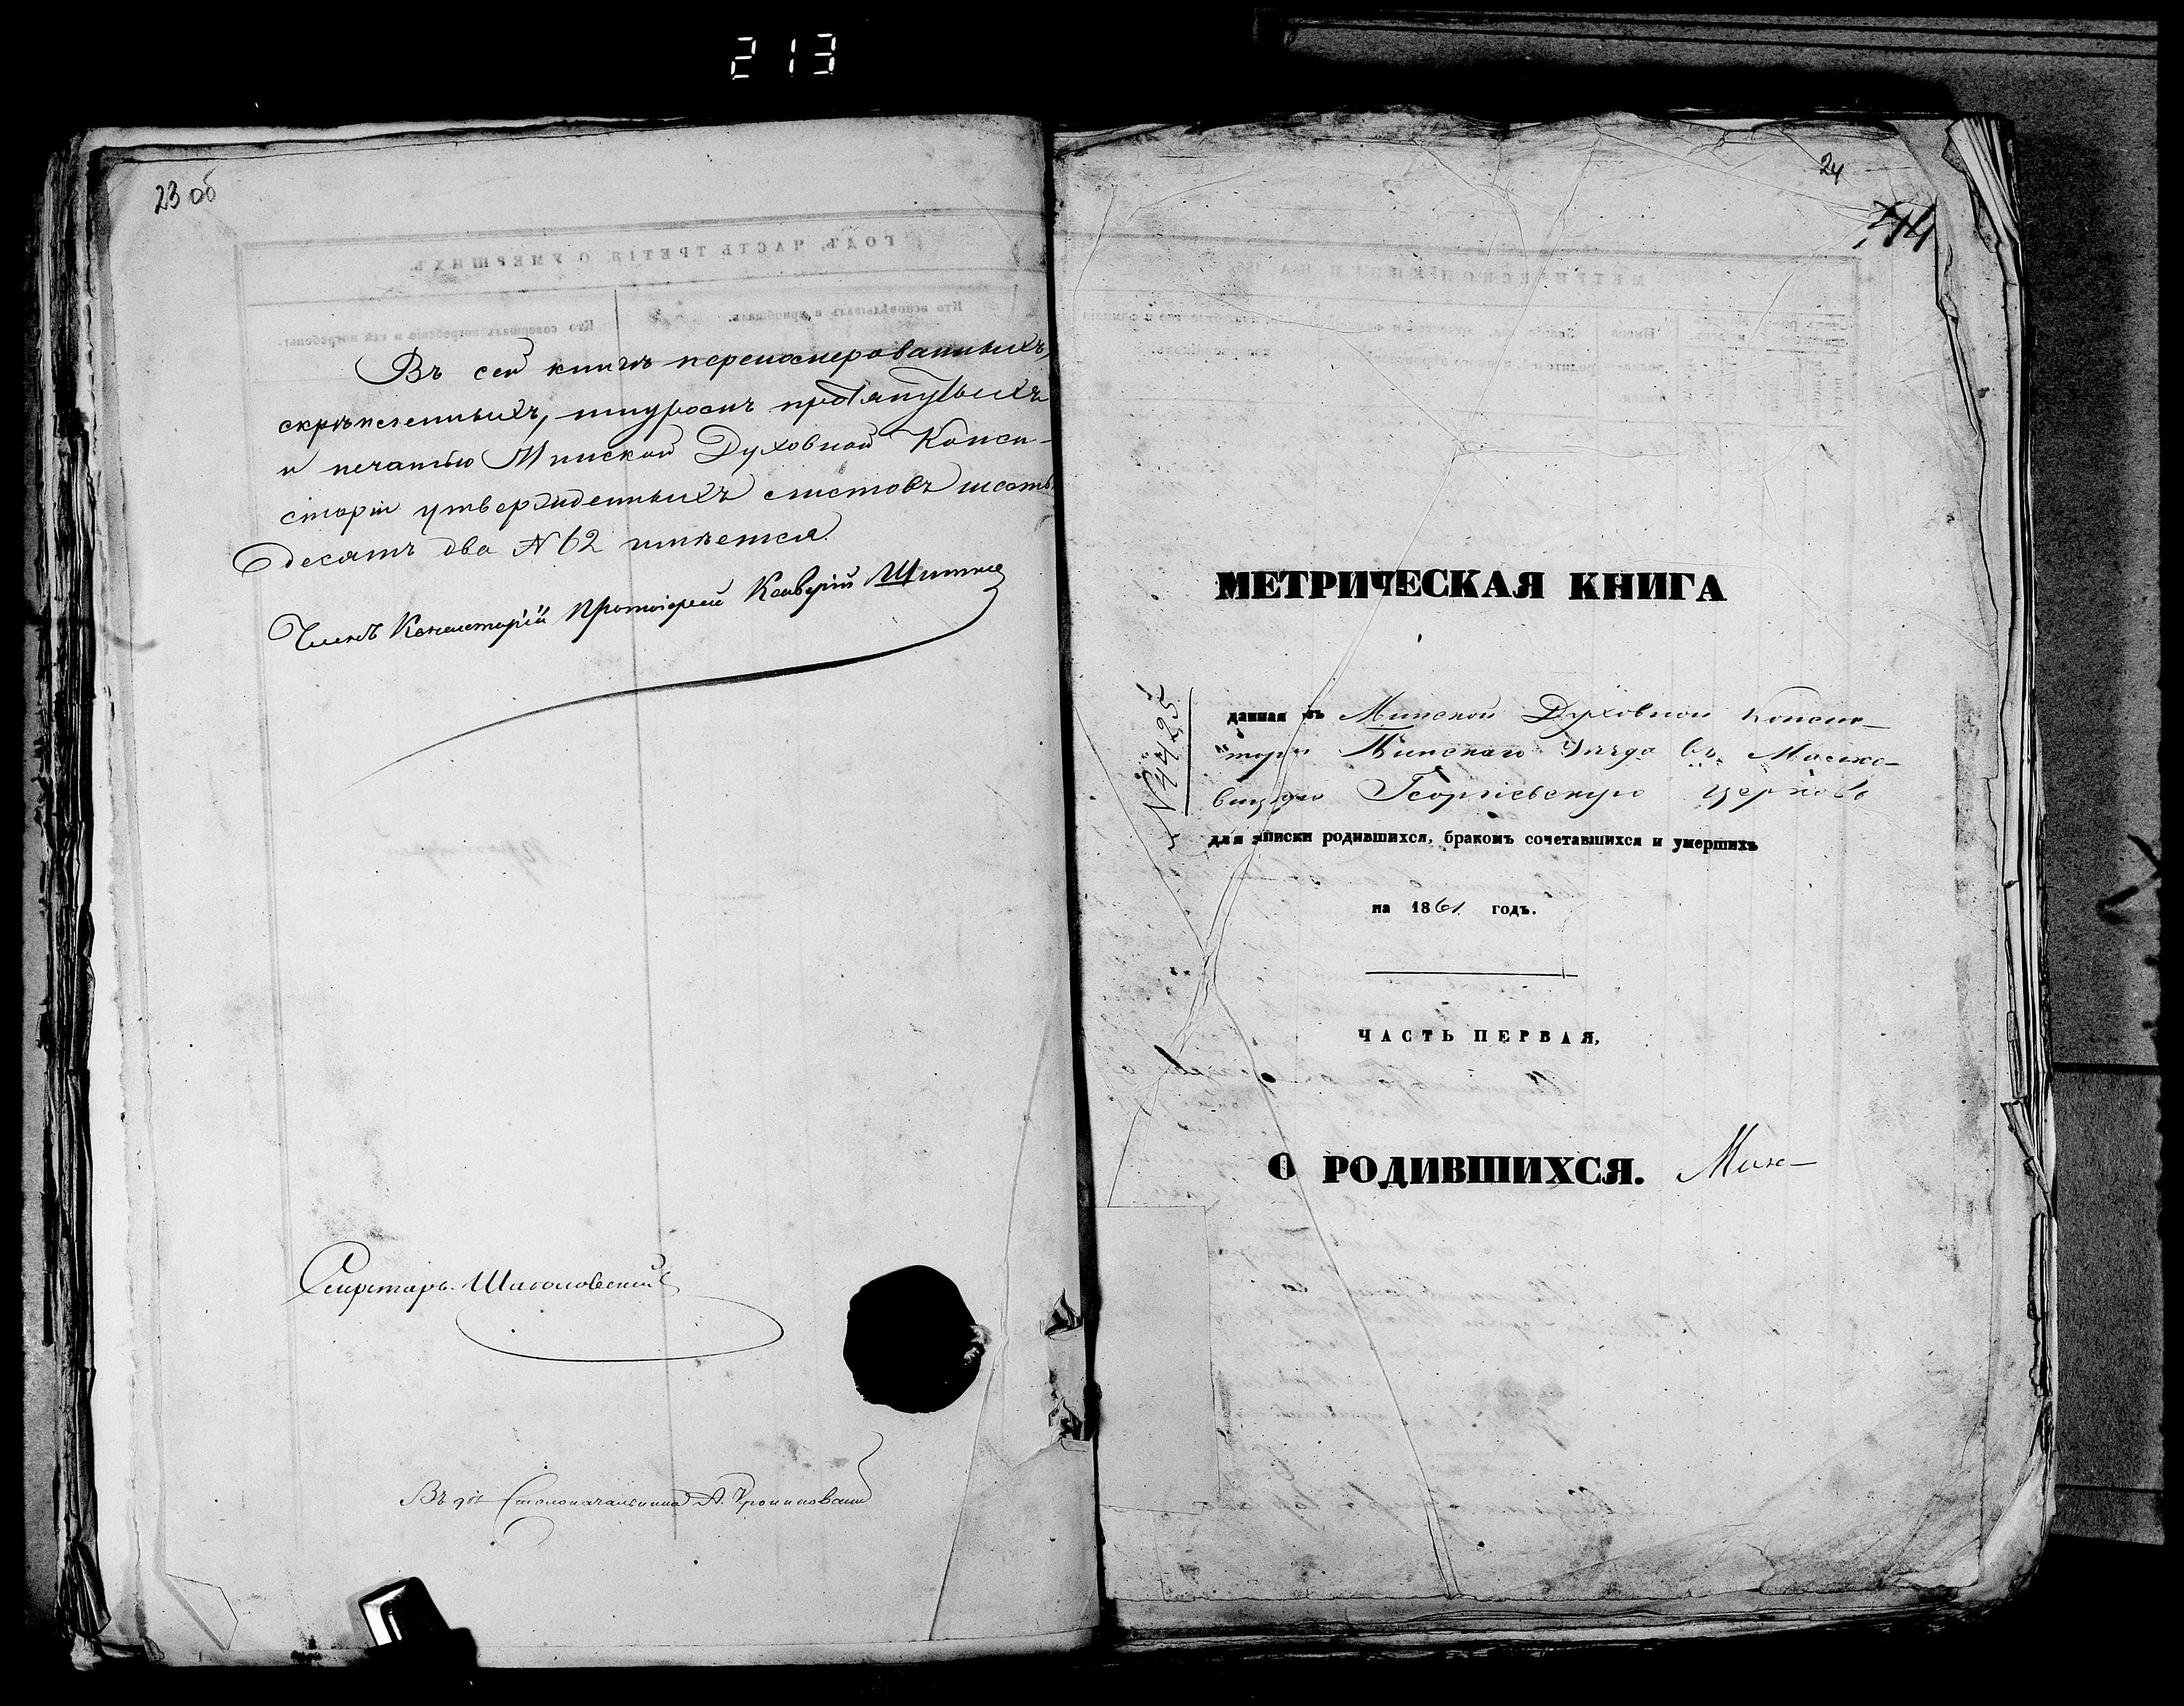 213
23 об
Въ сей книгѣ перенумерованныхъ,
скрѣпленныхъ, шнуромъ протянутыхъ
и печатью Минской Духовной Конси-
сторіи утвержденныхъ листовъ шесть
десятъ два №62 имѣется.
Членъ Консисторіи Протоіерей Ксаверій
Секретарь
Въ д. Столоначальника А.
24
МЕТРИЧЕСКАЯ КНИГА
№ 4425
данная изъ Минской Духовной Консис-
торіи Минскаго Уѣзда въ
Георгіевскую церковь
для записки родившихся, бракомъ сочетавшихся и умершихъ
на 1861 годъ.
ЧАСТЬ ПЕРВАЯ,
О РОДИВШИХСЯ.